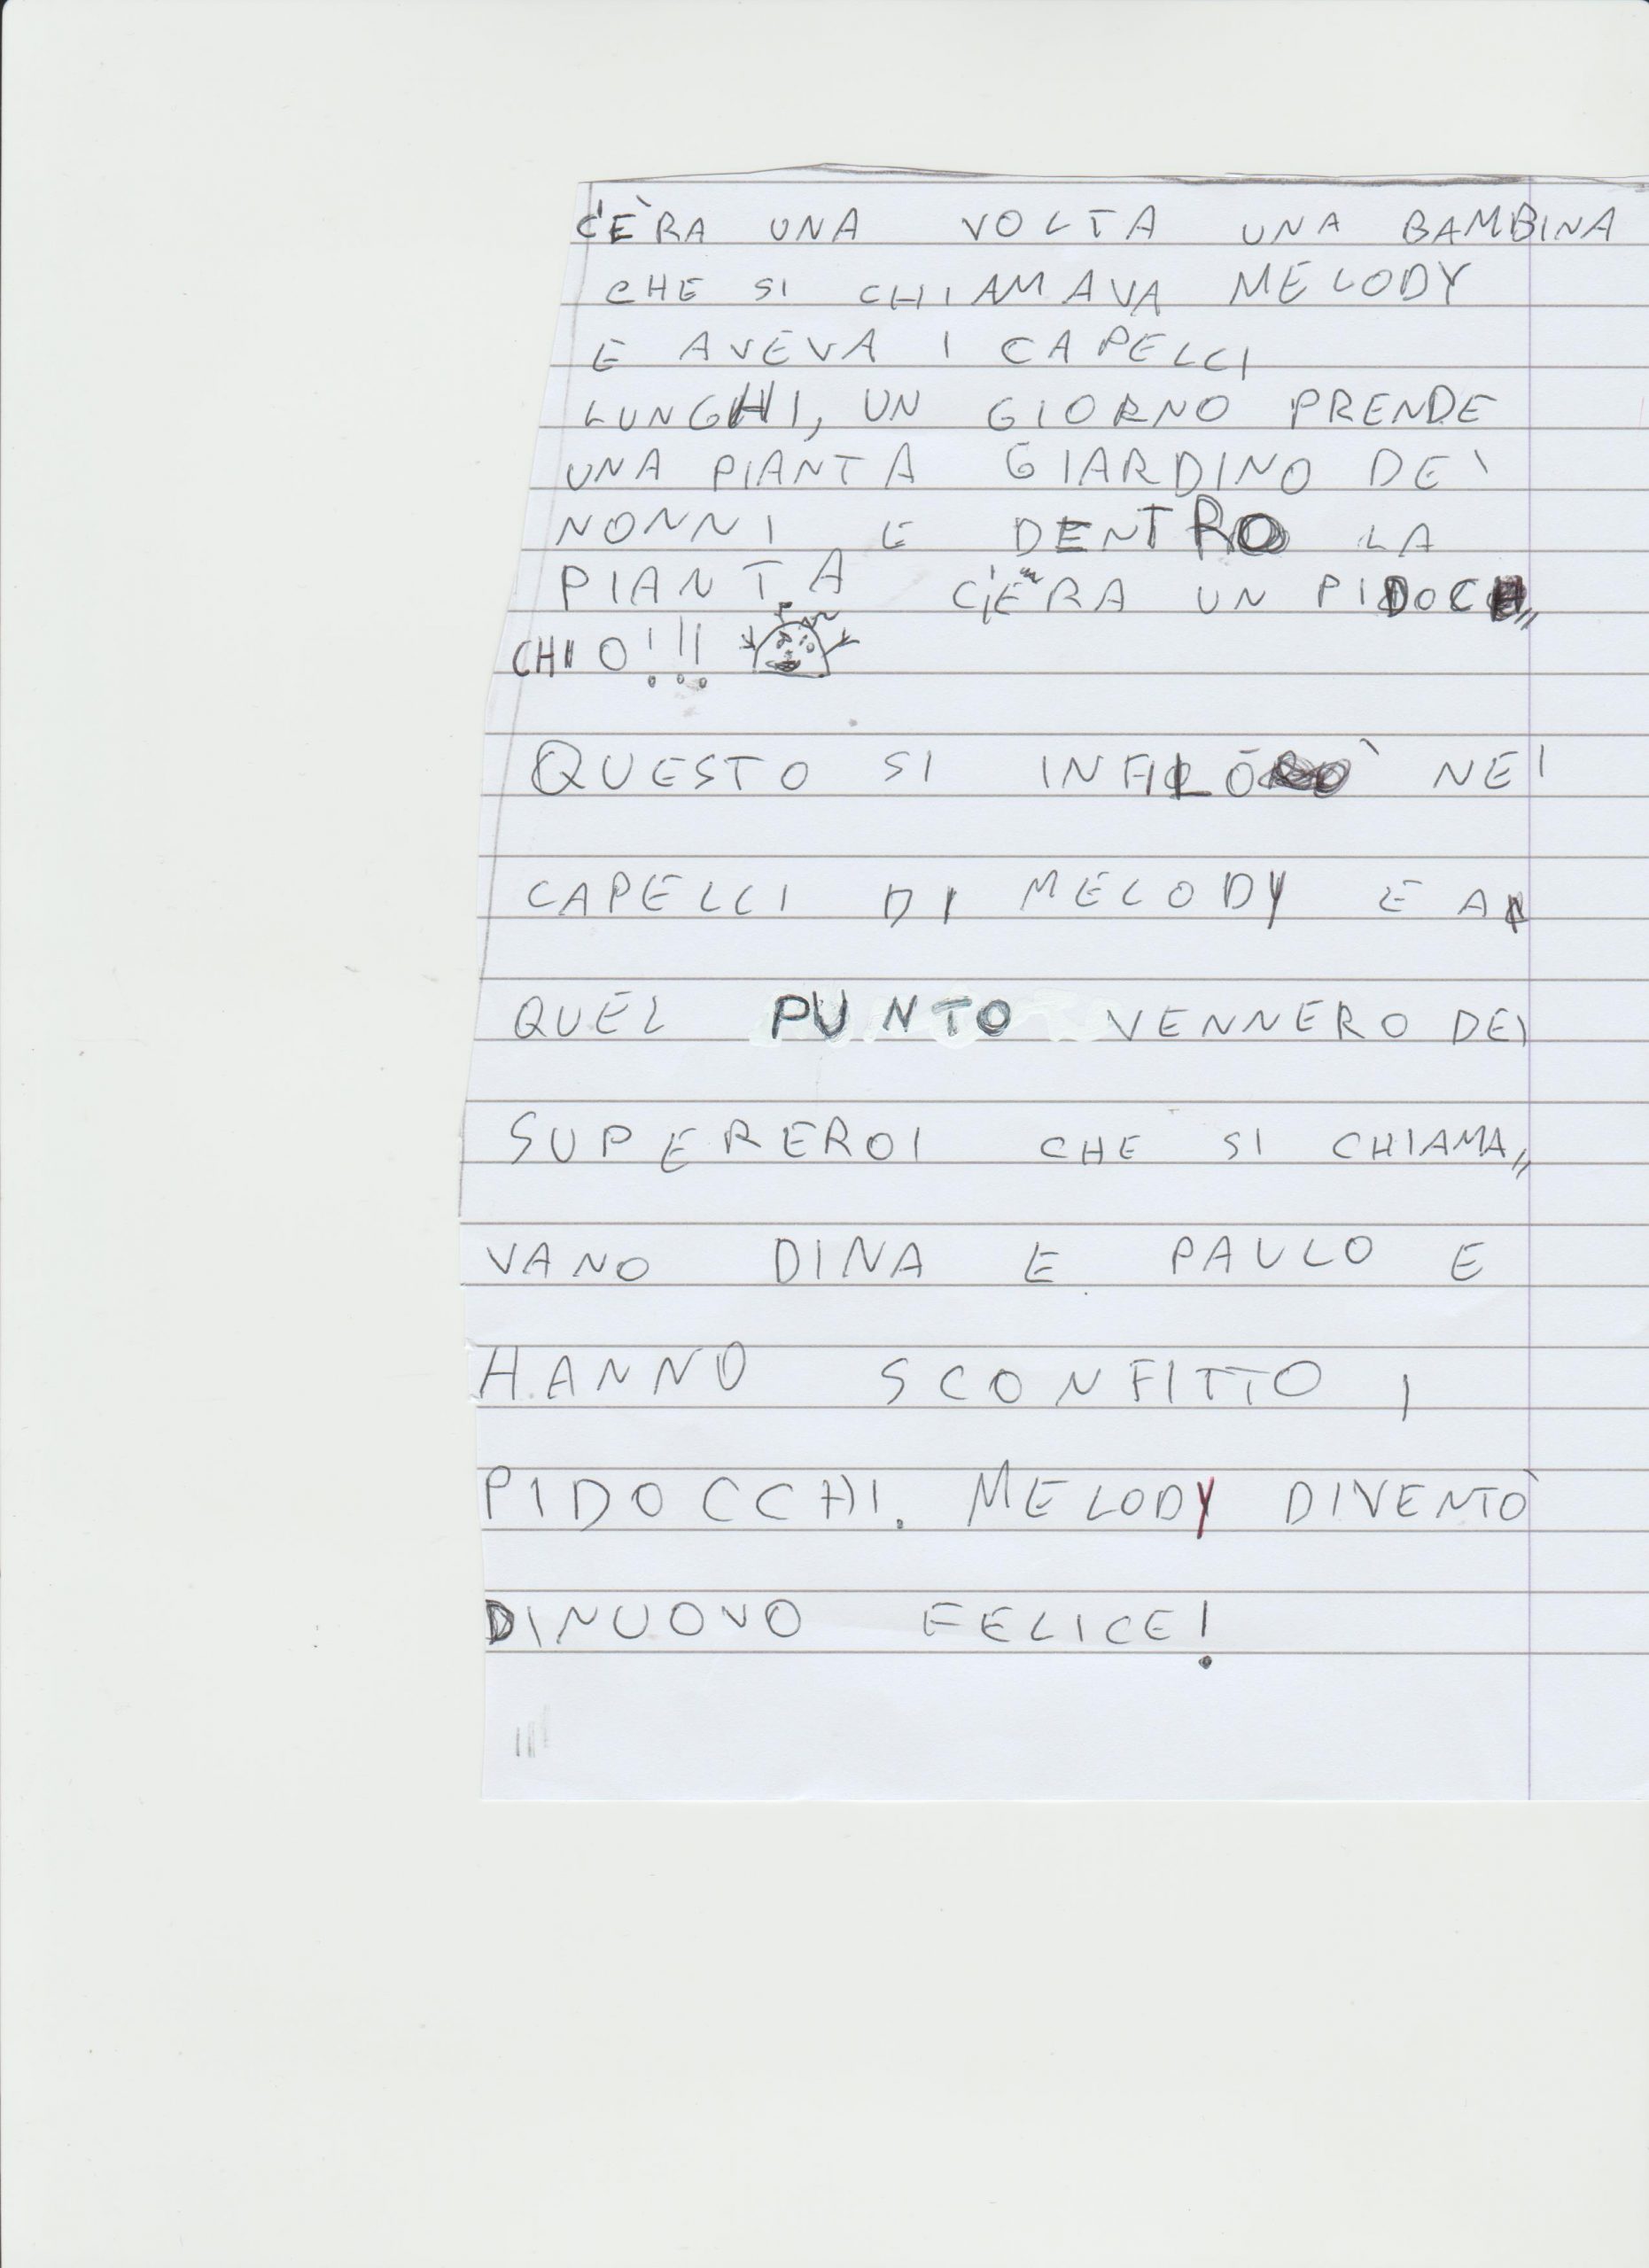 C'ÈRA UNA VOLTA UNA BAMBINA
CHE SI CHIAMAVA MELODY
E AVEVA I CAPELLI
LUNGHI, UN GIORNO PRENDE
UNA PIANTA GIARDINO DEI
NONNI E DENTRO LA
PIANTA C'ERA UN PIDOC,,
CHIO!!!
QUESTO SI INFILÒ NEI
CAPELLI DI MELODY E A
QUEL PUNTO VENNERO DEI
SUPEREROI CHE SI CHIAMA,,
VANO DINA E PAULO E
HANNO SCONFITTO I
PIDOCCHI. MELODY DIVENTÒ
DINUOVO FELICE!